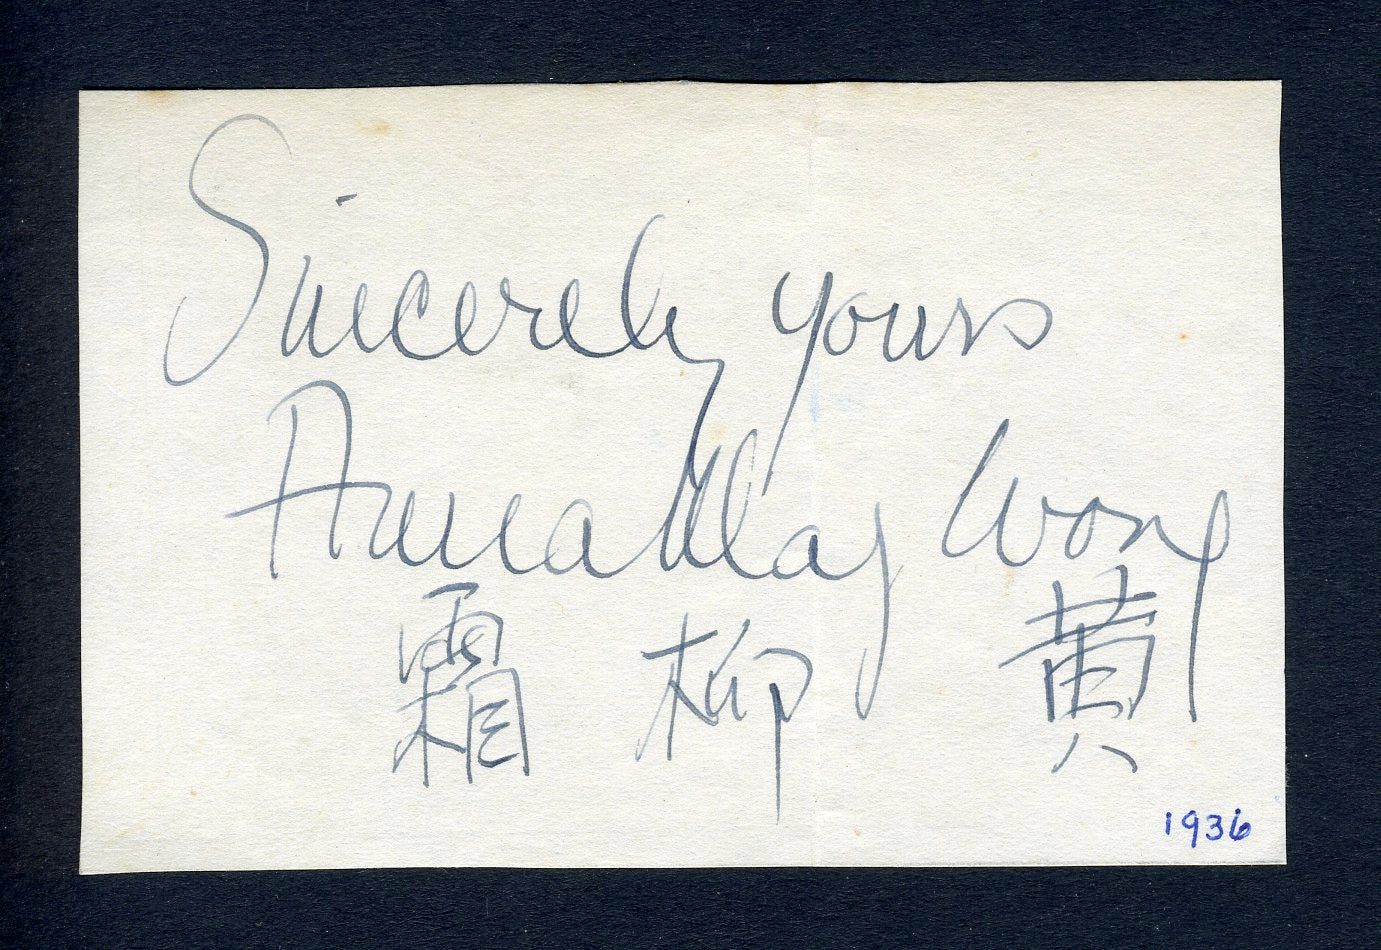 Sincerely yours
Anna May Wong
霜柳黄
1936